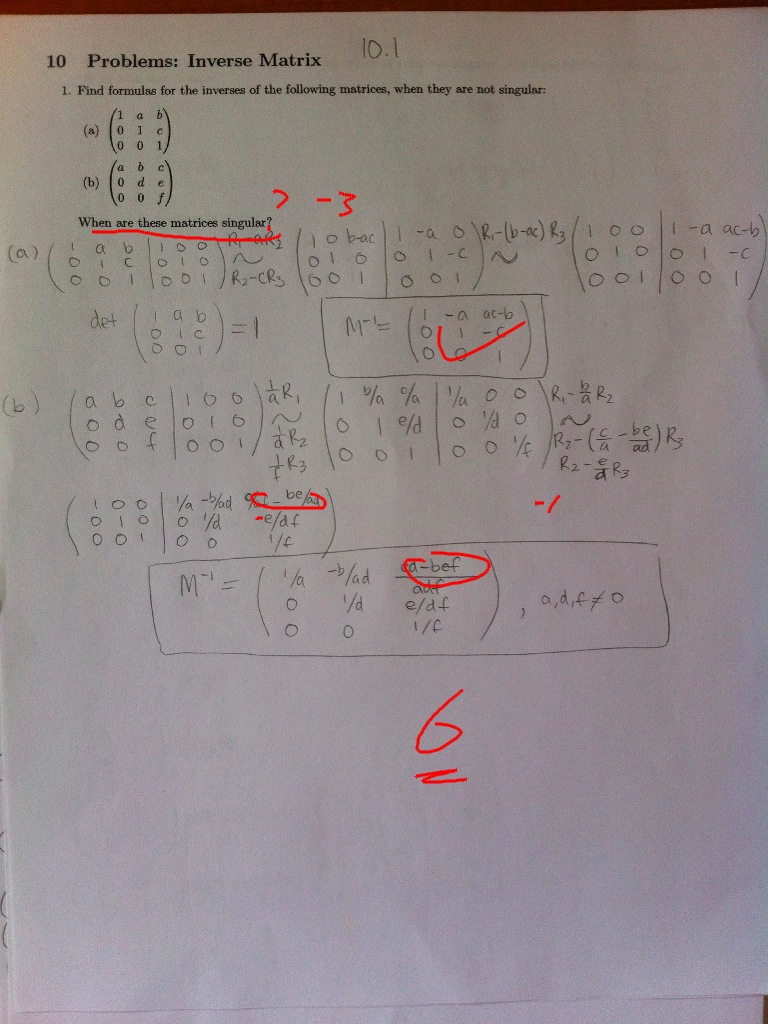 10.1
10 Problems: Inverse Matrix
1. Find formulas for the inverses of the following matrices, when they are not singular:
(a) ( 1 a b
0 1 c
0 0 1 )
(b) ( a b c
0 d e
0 0 f )
When are these matrices singular? ? -3
(a) ( 1 a b | 1 0 0
0 1 c | 0 1 0
0 0 1 | 0 0 1 ) R1-aR2
~
R2-cR3
( 1 0 b-ac | 1 -a 0
0 1 0 | 0 1 -c
0 0 1 | 0 0 1 ) R1-(b-ac)R3
~
( 1 0 0 | 1 -a ac-b
0 1 0 | 0 1 -c
0 0 1 | 0 0 1
det ( 1 a b
0 1 c
0 0 1 ) = 1
M⁻¹= ( 1 -a ac-b
0 1 -c
0 0 1 )
(b) ( a b c | 1 0 0
0 d e | 0 1 0
0 0 f | 0 0 1 ) 1/a R1
~
1/d R2
1/f R3
( 1 b/a c/a | 1/a 0 0
0 1 e/d | 0 1/d 0
0 0 1 | 0 0 1/f ) R1-b/a R2
~
R2-(c/a - be/ad) R3
R2-e/d R3
-1
( 1 0 0 | 1/a -b/ad be/ad
0 1 0 | 0 1/d -e/df
0 0 1 | 0 0 1/f )
M⁻¹ = ( 1/a -b/ad cd-bef/adf
0 1/d e/df
0 0 1/f ) , a,d,f≠0
6